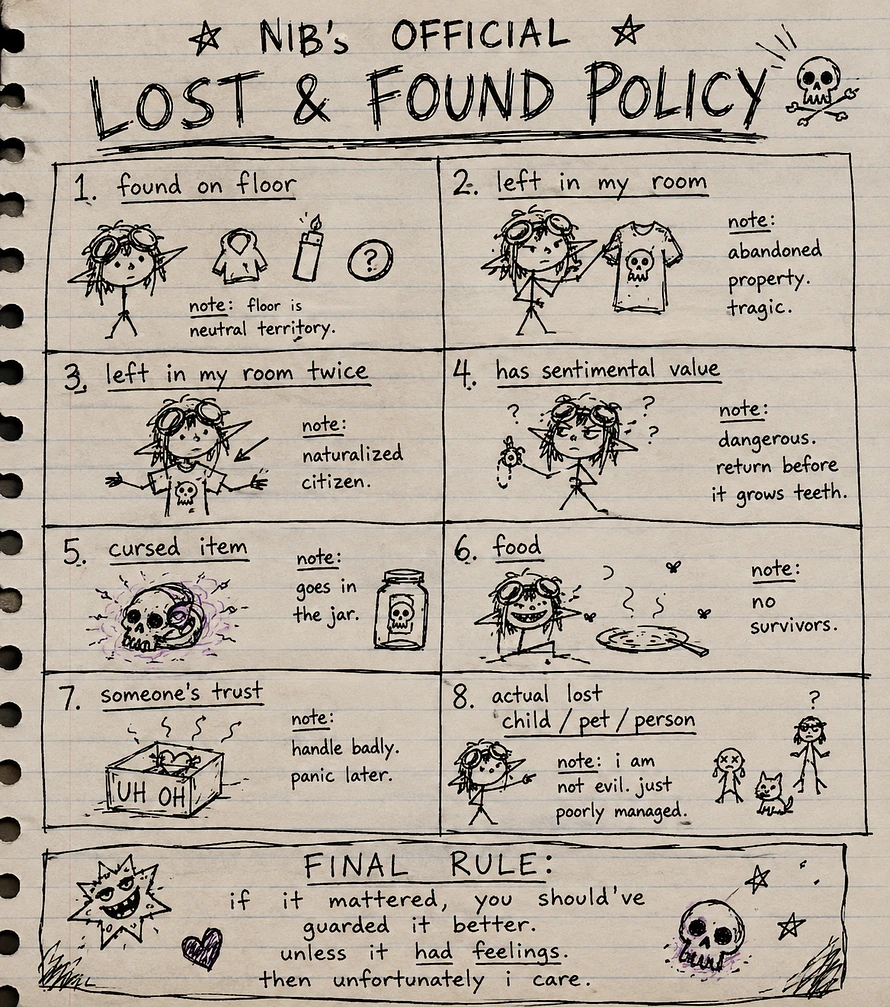 NIB's OFFICIAL
LOST & FOUND POLICY
1. found on floor
?
note: floor is
neutral territory.
2. left in my room
note:
abandoned
property.
tragic.
3. left in my room twice
note:
naturalized
citizen.
4. has sentimental value
?
?
?
note:
dangerous.
return before
it grows teeth.
5. cursed item
note:
goes in
the jar.
6. food
note:
no
survivors.
7. someone's trust
UH OH
note:
handle badly.
panic later.
8. actual lost
child / pet / person
?
note: i am
not evil. just
poorly managed.
FINAL RULE:
if it mattered, you should've
guarded it better.
unless it had feelings.
then unfortunately i care.